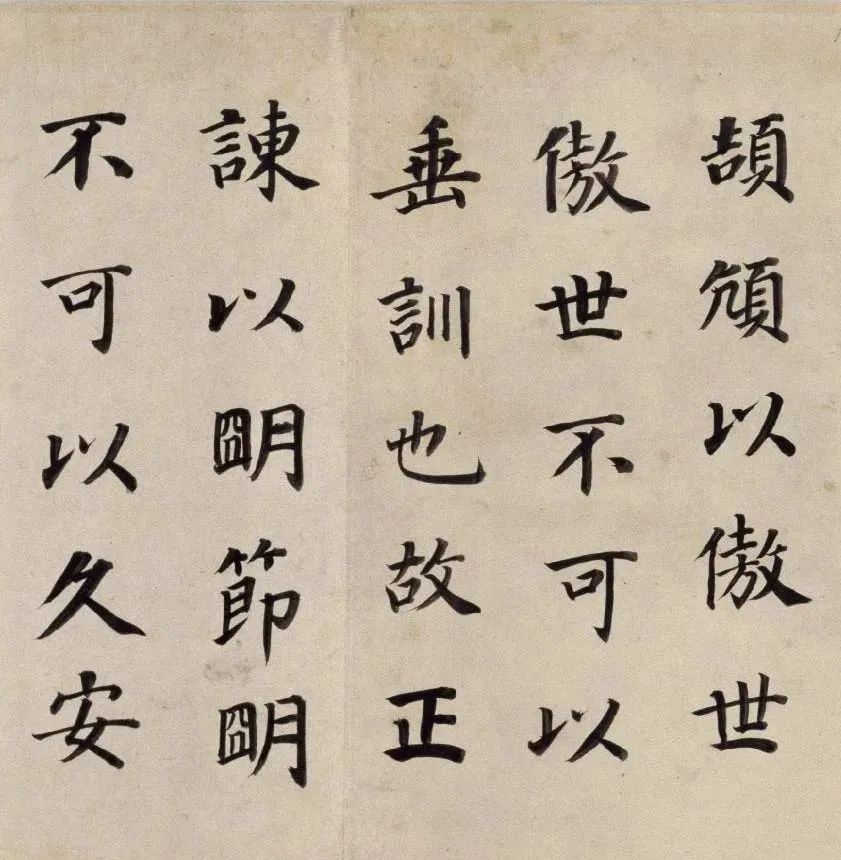 頡頏以傲世
傲世不可以
垂訓也故正
諫以明節明
不可以久安